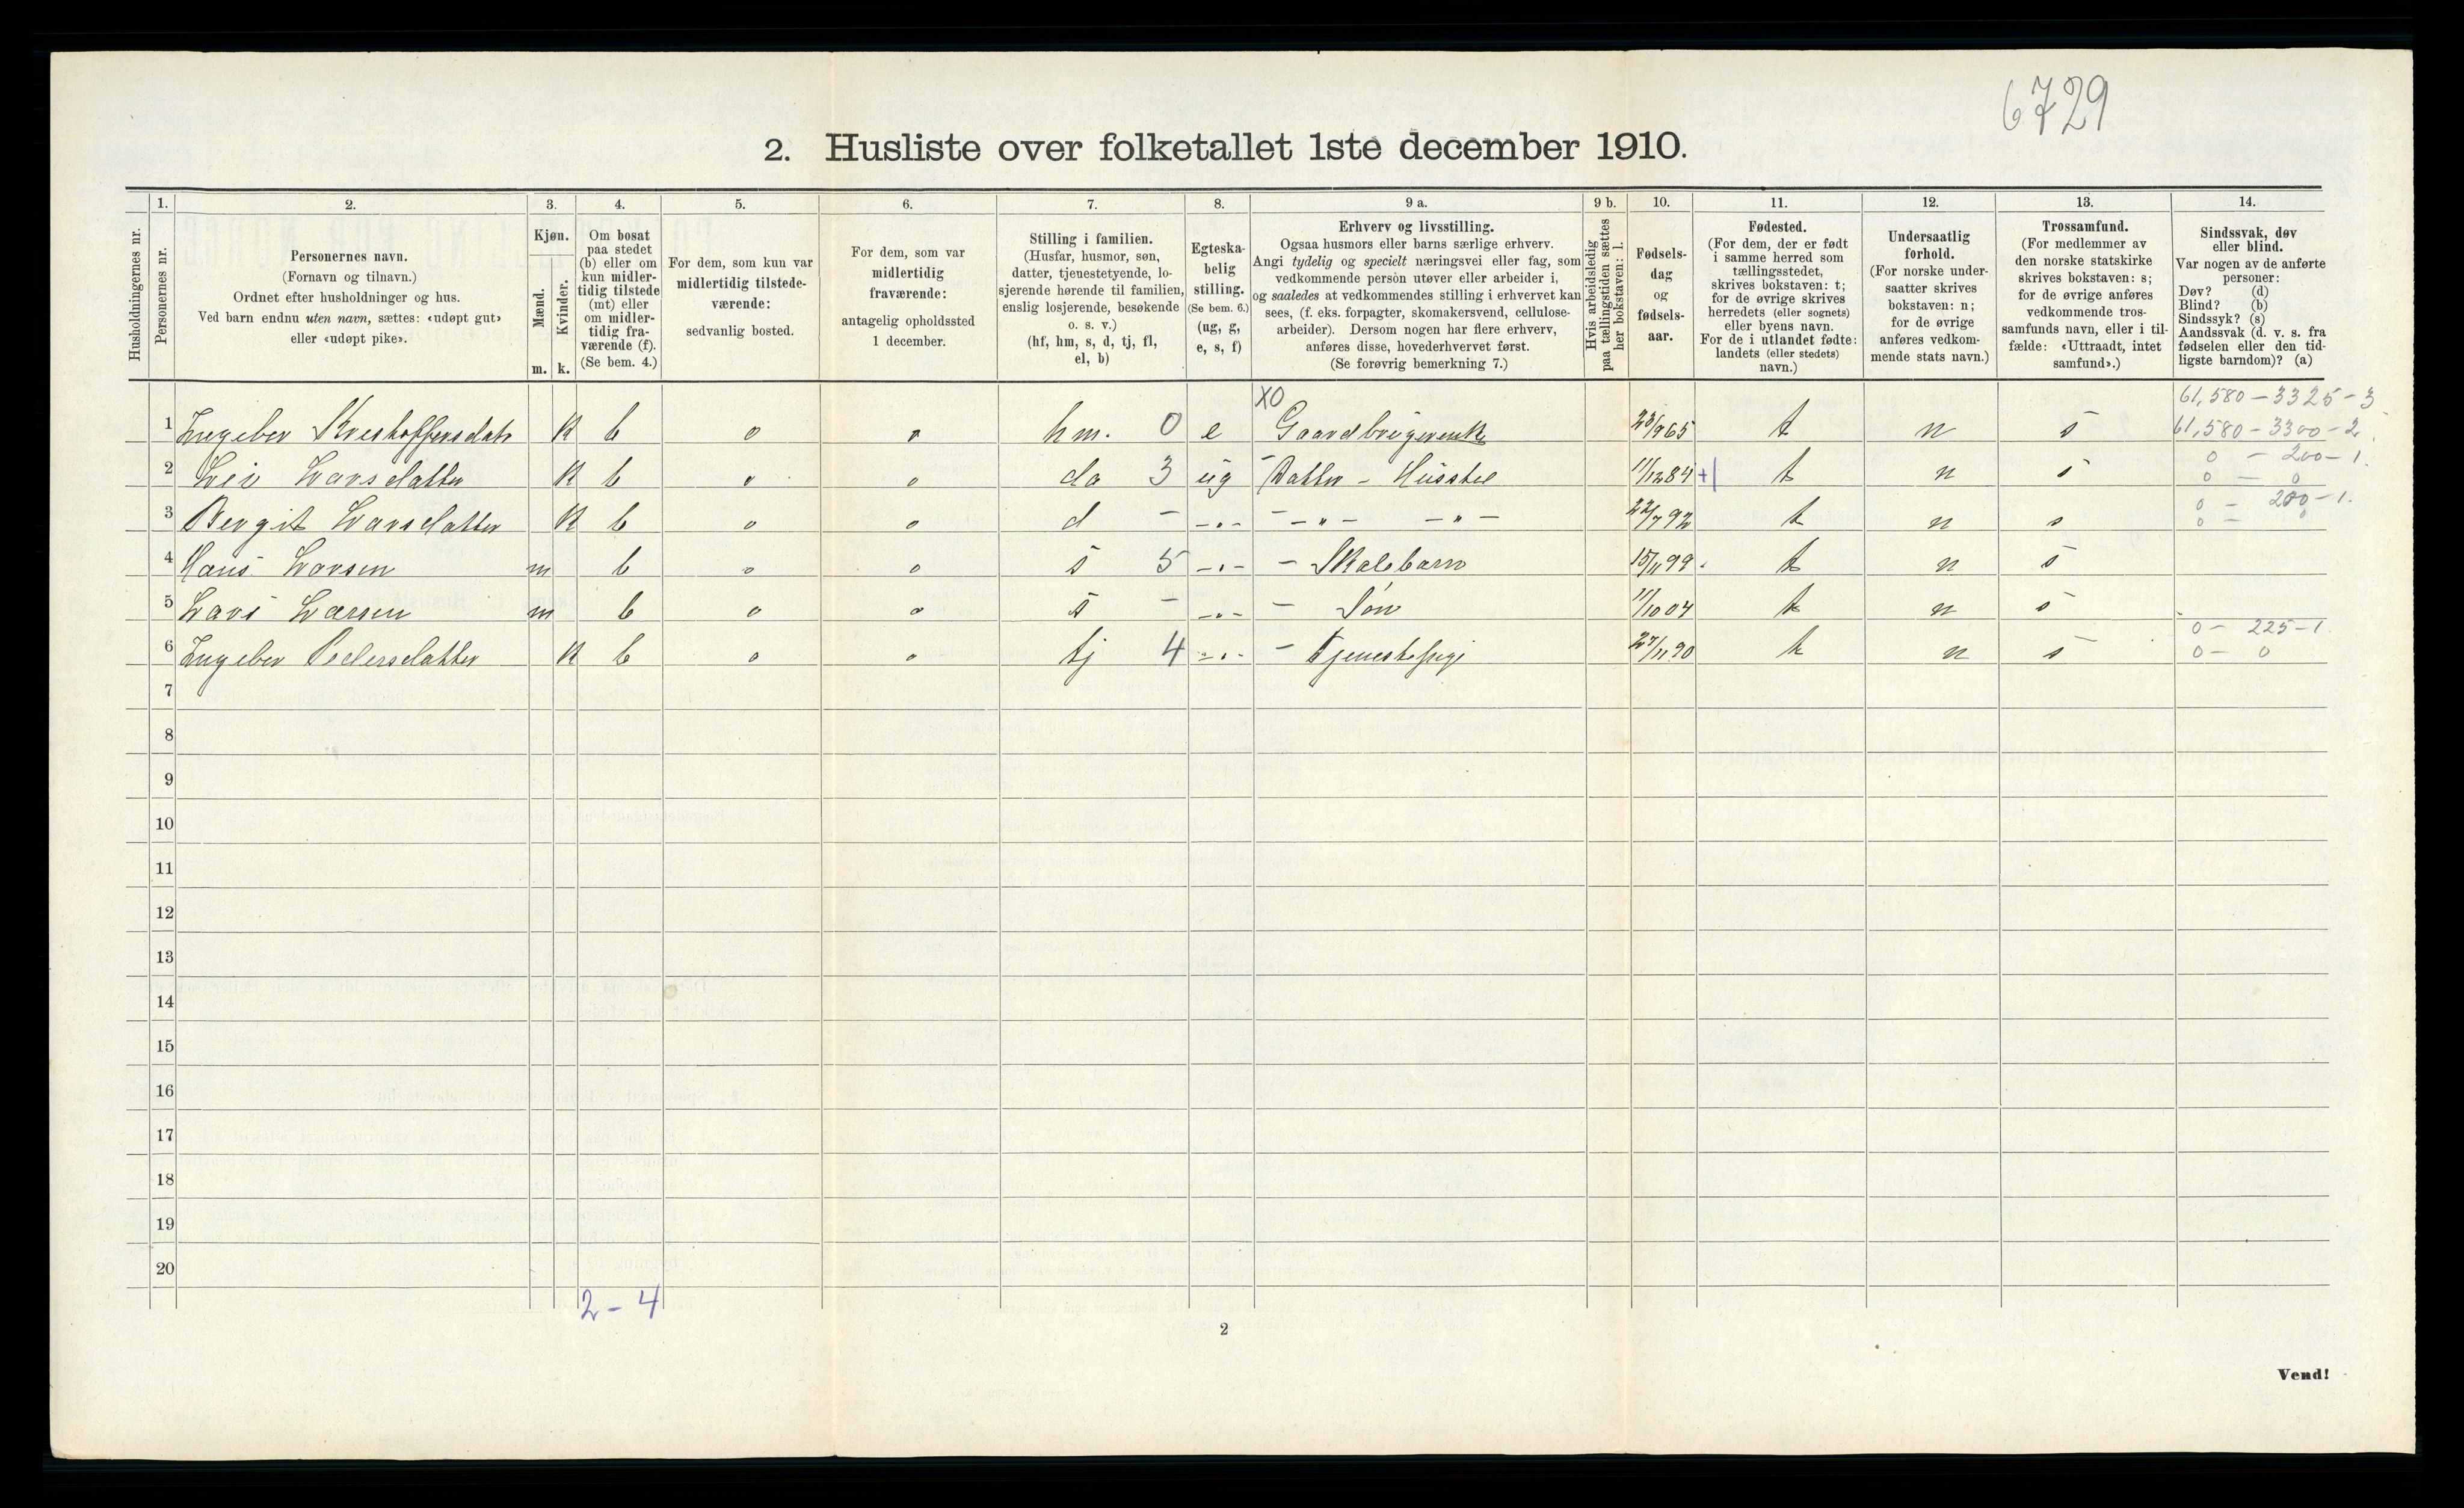 6729
2. Husliste over folketallet 1ste december 1910.
Husholdningernes nr.
1. Personernes nr.
2. Personernes navn.
(Fornavn og tilnavn.)
Ordnet efter husholdninger og hus.
Ved barn endnu uten navn, sættes: «udøpt gut»
eller «udøpt pike».
3. Kjøn.
Mænd. m.
Kvinder. k.
4. Om bosat
paa stedet
(b) eller om
kun midler-
tidig tilstede
(mt) eller
om midler-
tidig fra-
værende (f).
(Se bem. 4.)
5. For dem, som kun var
midlertidig tilstede-
værende:
sedvanlig bosted.
6. For dem, som var
midlertidig
fraværende:
antagelig opholdssted
1 december.
7. Stilling i familien.
(Husfar, husmor, søn,
datter, tjenestetyende, lo-
sjerende hørende til familien,
enslig losjerende, besøkende
o. s. v.)
(hf, hm, s, d, tj, fl,
el, b)
8. Egteska-
belig
stilling.
(Se bem. 6.)
(ug, g,
e, s, f)
9 a. Erhverv og livsstilling.
Ogsaa husmors eller barns særlige erhverv.
Angi tydelig og specielt næringsvei eller fag, som
vedkommende person utøver eller arbeider i,
og saaledes at vedkommendes stilling i erhvervet kan
sees, (f. eks. forpagter, skomakersvend, cellulose-
arbeider). Dersom nogen har flere erhverv,
anføres disse, hovederhvervet først.
(Se forøvrig bemerkning 7.)
9 b. Hvis arbeidsledig
paa tællingstiden sættes
her bokstaven: l.
10. Fødsels-
dag
og
fødsels-
aar.
11. Fødested.
(For dem, der er født
i samme herred som
tællingsstedet,
skrives bokstaven: t;
for de øvrige skrives
herredets (eller sognets)
eller byens navn.
For de i utlandet fødte:
landets (eller stedets)
navn.)
12. Undersaatlig
forhold.
(For norske under-
saatter skrives
bokstaven: n;
for de øvrige
anføres vedkom-
mende stats navn.)
13. Trossamfund.
(For medlemmer av
den norske statskirke
skrives bokstaven: s;
for de øvrige anføres
vedkommende tros-
samfunds navn, eller i til-
fælde: «Uttraadt, intet
samfund».)
14. Sindssvak, døv
eller blind.
Var nogen av de anførte
personer:
Døv? (d)
Blind? (b)
Sindssyk? (s)
Aandssvak (d. v. s. fra
fødselen eller den tid-
ligste barndom)? (a)
XO 61,580 - 3325 - 3
1 Ingebor K b o o hm. 0 e 23/9 65 t n s 61,580 - 3300 - 2
0 - 200 - 1.
2 Larsdatter K b o o da 3 ug Datter - Husstel 11/12 84 + t n s 0 - 0
0 - 200 - 1.
3 Bergit Larsdatter K b o o d - -"- -"- -"- 22/7 92 t n s 0 - 0
4 Hans Larsen m b o o s 5 -"- - Skolebarn 15/11 99 t n s
5 Lars Larsen m b o o s - -"- - Søn 11/10 04 t n s
0 - 225 - 1.
6 Ingebor Pedersdatter K b o o tj 4 -"- - Tjenestepige 27/11 90 t n s 0 - 0
7
8
9
10
11
12
13
14
15
16
17
18
19
20
2 - 4
2
Vend!